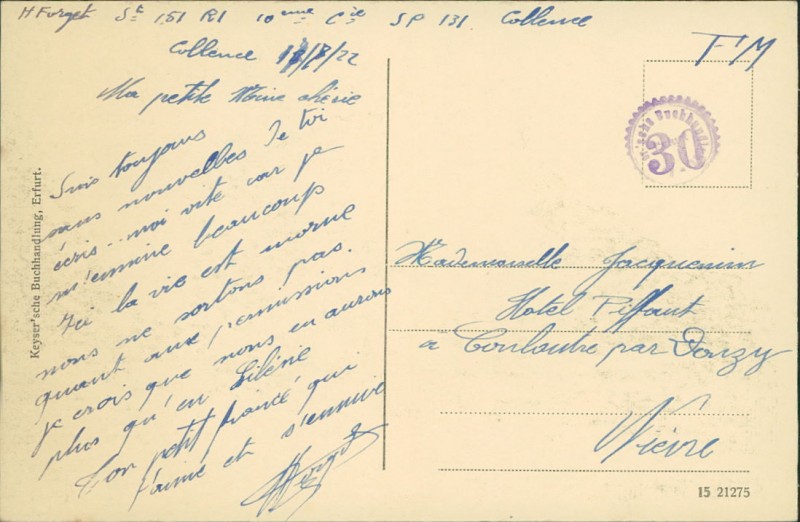 H Forget St 151 RI 10me Cie SP 131 Coblence
Coblence 18/8/22
FM
Ma petite Reine chérie
Suis toujours
sans nouvelles de toi
écris-moi vite car je
m'ennuie beaucoup
Ici la vie est morne
nous ne sortons pas.
quant aux permissions
je crois que nous en aurons
plus qu'en Sibérie
Ton petit fiancé qui
t'aime et s'ennuie
HForget
Keyser'sche Buchhandlung, Erfurt.
30
Mademoiselle Jacquemin
Hotel Piffaut
a Couloutre par Donzy
Nièvre
15 21275